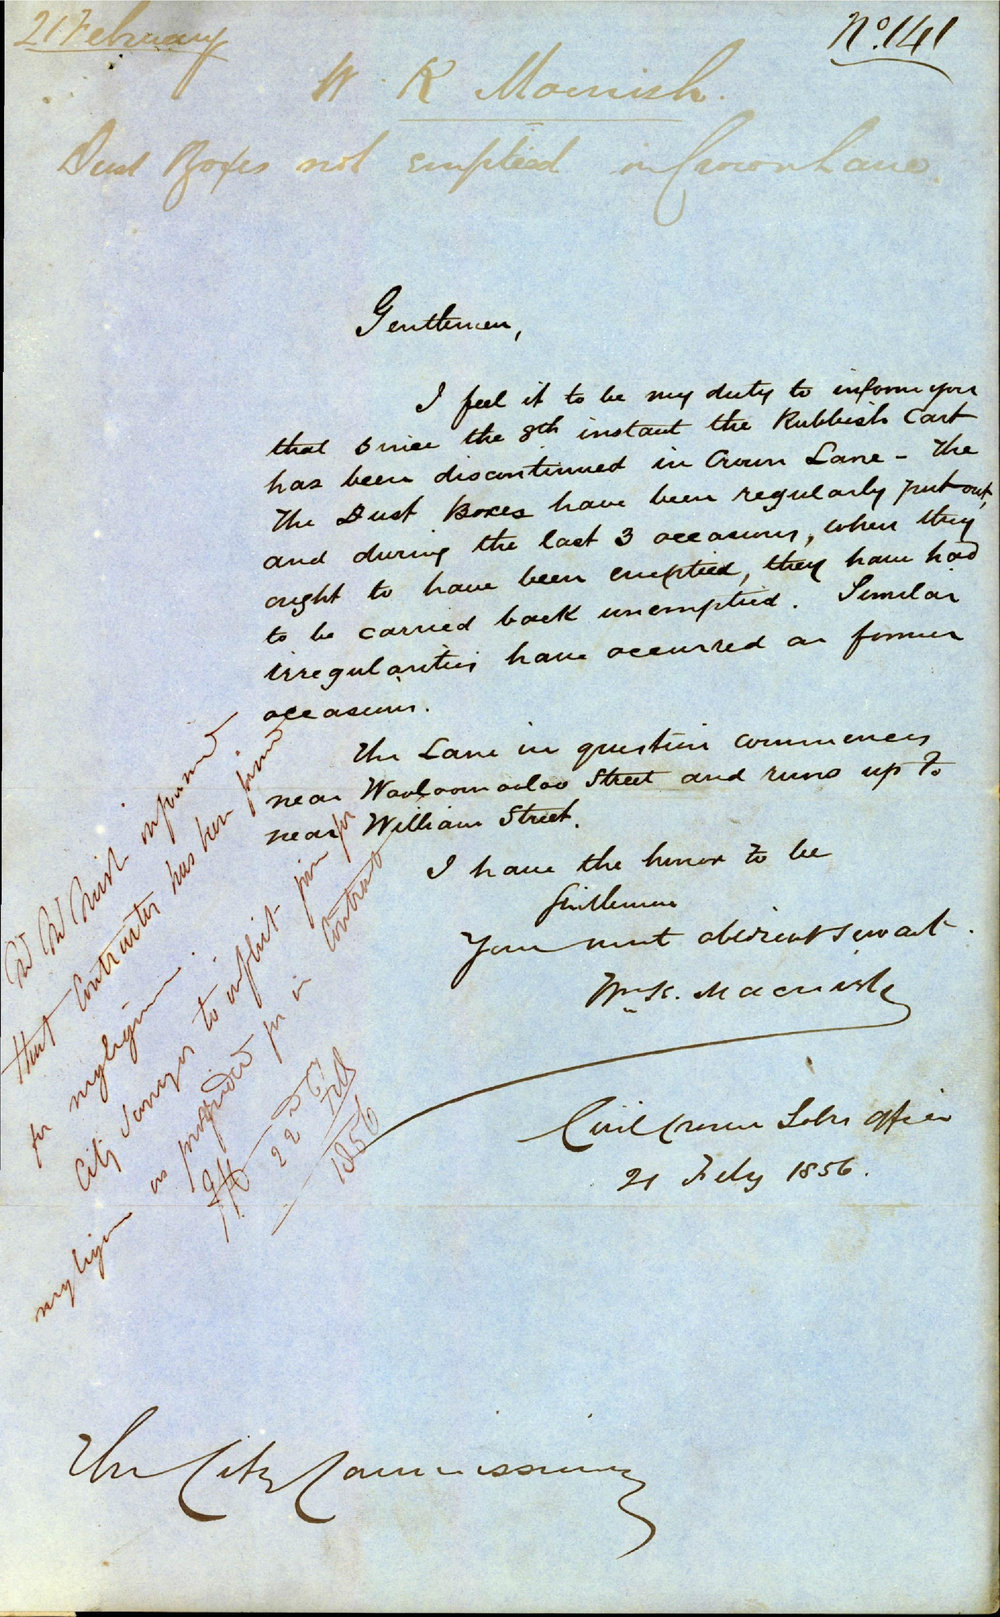 21 February
No. 141
W. K Macnish.
Dust Boxes not emptied in Crown Lane.
Gentlemen,
I feel it to be my duty to inform you
that since the 8th instant the Rubbish Cart
has been discontinued in Crown Lane - The
The Dust Boxes have been regularly put out,
and during the last 3 occasions, when they
ought to have been emptied, they have had
to be carried back unemptied. Similar
irregularities have occurred on former
occasions.
The Lane in question commences
near Woolloomooloo Street and runs up to
near William Street.
I have the honor to be
Gentlemen
Your most obedient servant.
Wm K. Macnish
Civil Crown Solrs Office
21 Feby 1856.
informed
that Contractor has been fined
for negligence.
City Surveyor to inflict fine for
negligence as provided for in Contract
22d
Feb
1856
The City Commissioners